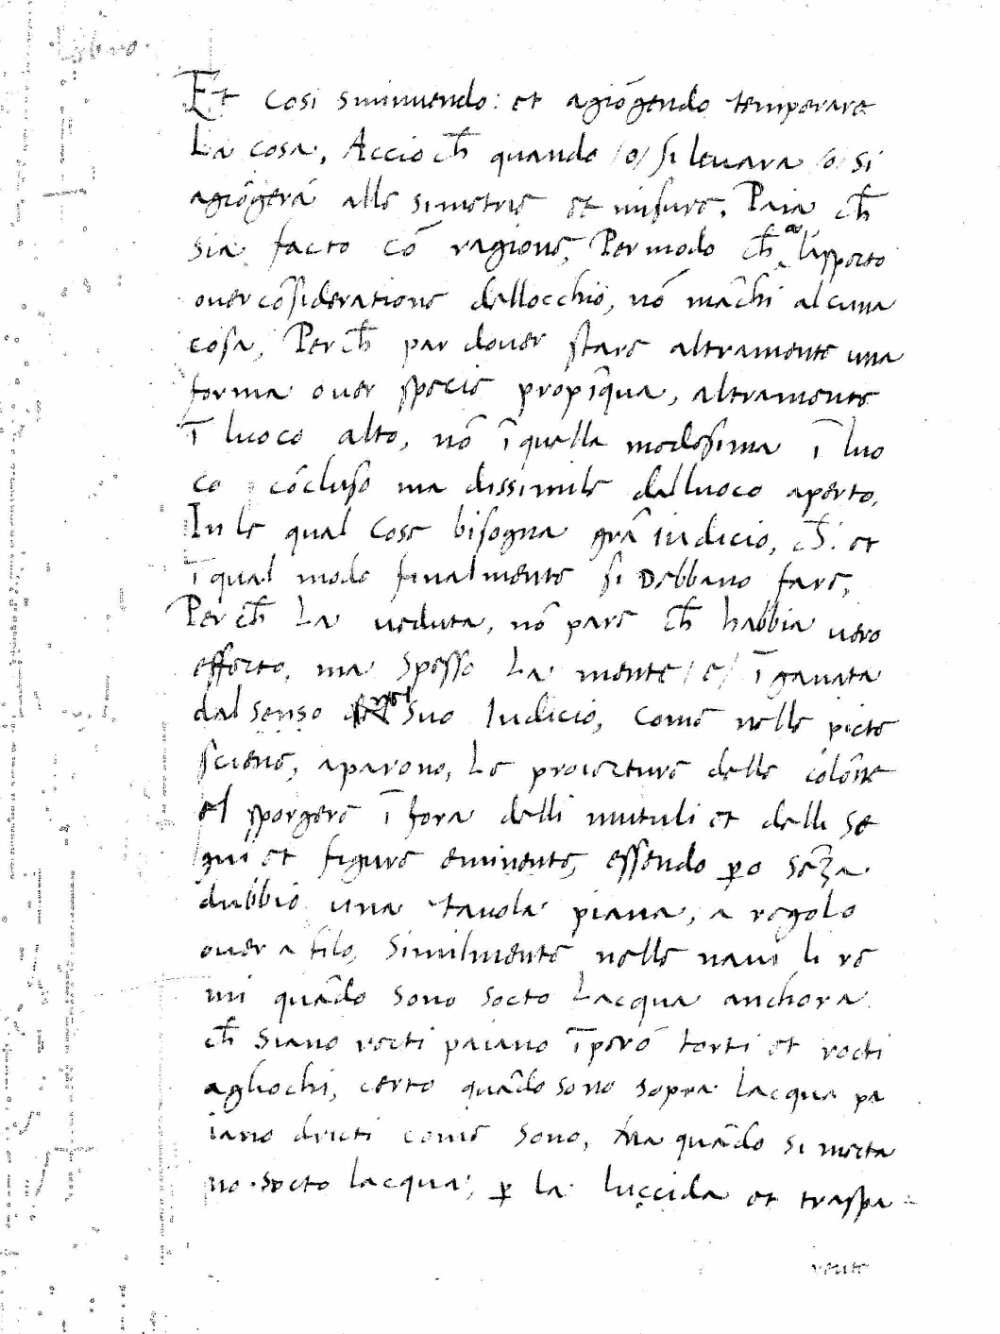 Libro.
Et Cosi sminuendo: et agiõgendo temperare
La cosa, Accio ch̃ quando /o/ si leuara /o/ si
agiõgerá alle simetrie et misure, Paia ch̃
sia facto cõ ragione, Per modo ch̃ al'aspecto
ouer cõsideratione dellocchio, nõ mãchi alcuna
cosa, Perch̃ par douer stare altramente una
forma ouer specie propĩqua, altramente
ĩ luoco alto, nõ ĩ quella medesima ĩ luo
co cõcluso ma dissimile dal luoco aperto,
In le qual Cose bisogna grã iudicio, ch̃: et
ĩ qual modo finalmente si Debbano fare,
Per ch̃ La ueduta, nõ pare ch̃ habbia uero
effecto, ma Spesso La mente /e/ ĩganata
dal senso nel suo Iudicio, Come nelle picte
sciene, aparono, Le proiecture delle colõne
el sporgere ĩ fora delli mutuli et delli se
gni et figure eminente, essendo ꝑo sẽza
dubbio una tauola piana, a regolo
ouer a filo, Similmente nelle naui li re
mi quãdo sono socto Lacqua anchora
ch̃ siano recti paiano ĩperó torti et rocti
agliochi, certo quãdo sono sopra Lacqua pa
iano dricti come sono, Ma quãdo si metta
no socto lacqua, ꝑ la luccida et traspa
rente